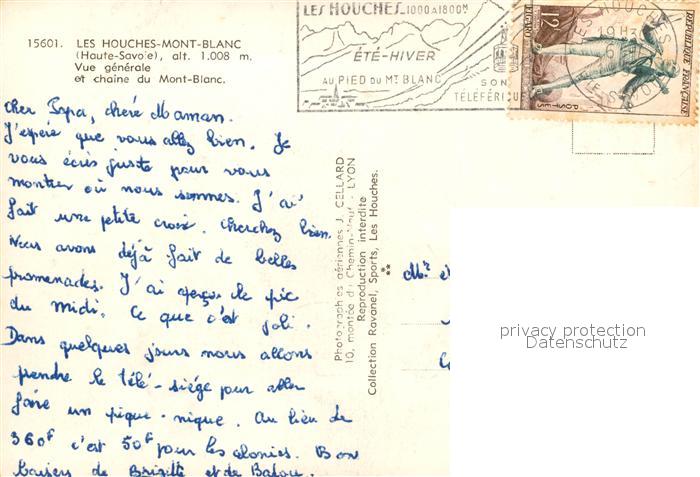 15601. LES HOUCHES-MONT-BLANC
(Haute-Savoie), alt. 1.008 m.
Vue générale
et chaîne du Mont-Blanc.
LES HOUCHES 1000 A 1800m
ÉTÉ-HIVER
AU PIED DU MT BLANC
SON
TÉLÉFÉRIQUE
12F
FIGARO
RÉPUBLIQUE FRANÇAISE
POSTES
Cher Papa, chère Maman.
J'espère que vous allez bien. Je
vous écris juste pour vous
montrer où nous sommes. J'ai
fait une petite croix. Cherchez bien.
Nous avons déjà fait de belles
promenades. J'ai aperçu le pic
du Midi. Ce que c'est joli.
Dans quelques jours nous allons
prendre le télé-siège pour aller
faire un pique-nique. Au lieu de
360F c'est 50F pour les colonies. Bon
baisers de Brigitte et de
Photographies aériennes J. CELLARD
10, montée du Chemin-Neuf - LYON
Reproduction interdite
Collection Ravanel, Sports, Les Houches.
Mr
privacy protection
Datenschutz